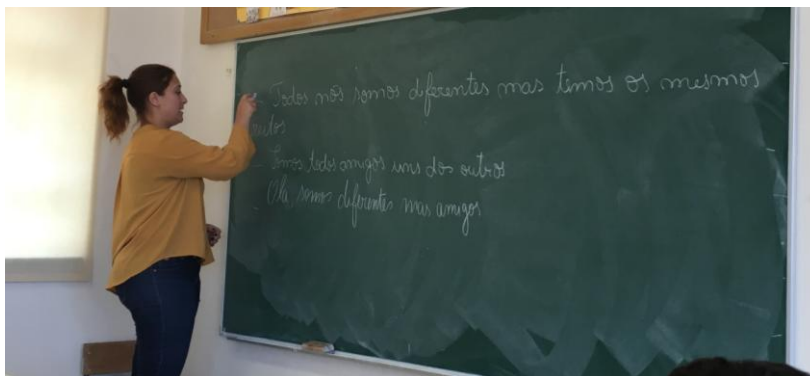 - Todos nós somos diferentes mas temos os mesmos
- Somos todos amigos uns dos outros
- Olá, somos diferentes mas amigos